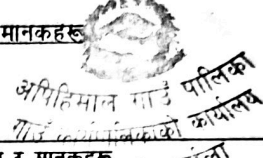 मानकहरू
अपिहिमाल गाउँ पालिका
गाउँ कार्यपालिकाको कार्यालय
र मानकहरू